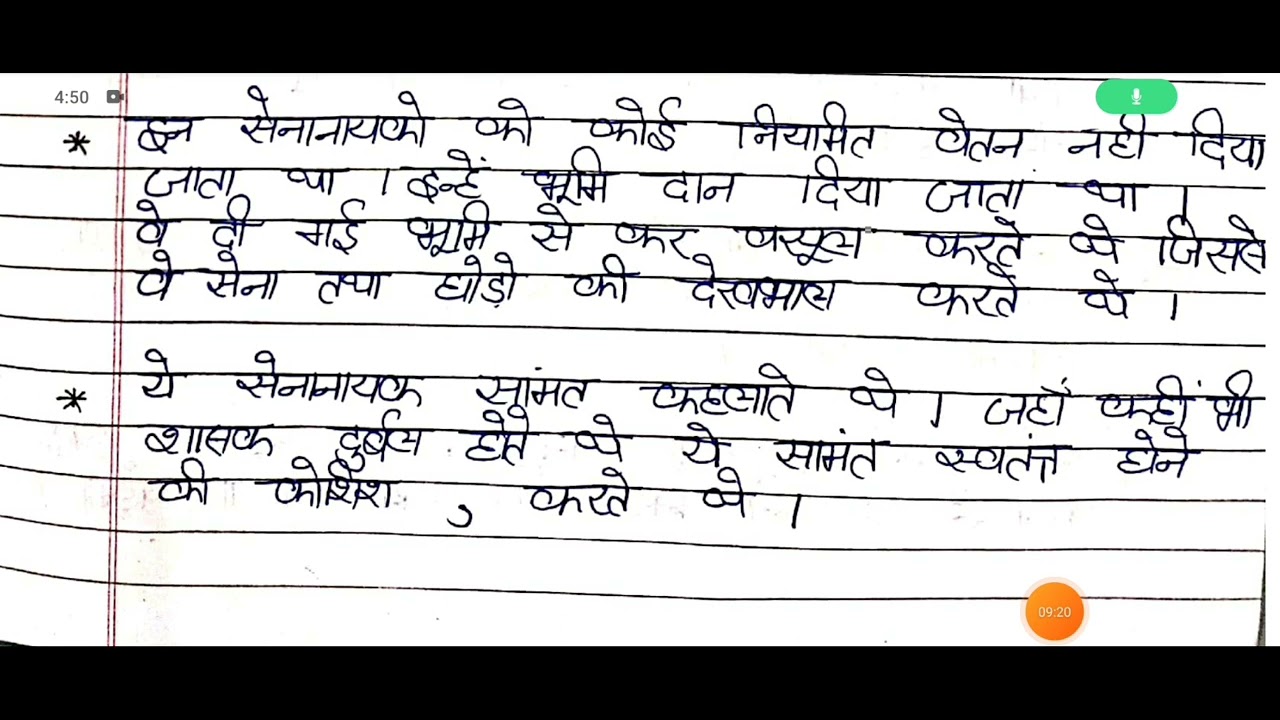 4:50
* इन सेनानायको को कोई नियमित वेतन नही दिया
जाता था । इन्हें भूमि दान दिया जाता था ।
वे दी गई भूमि से कर वसूल करते थे जिससे
वे सेना तथा घोड़ो की देखभाल करते थे ।
* ये सेनानायक सामंत कहलाते थे । जहाँ कहीं भी
शासक दुर्बल होते थे ये सामंत स्वतंत्र होने
की कोशिश , करते थे ।
09:20